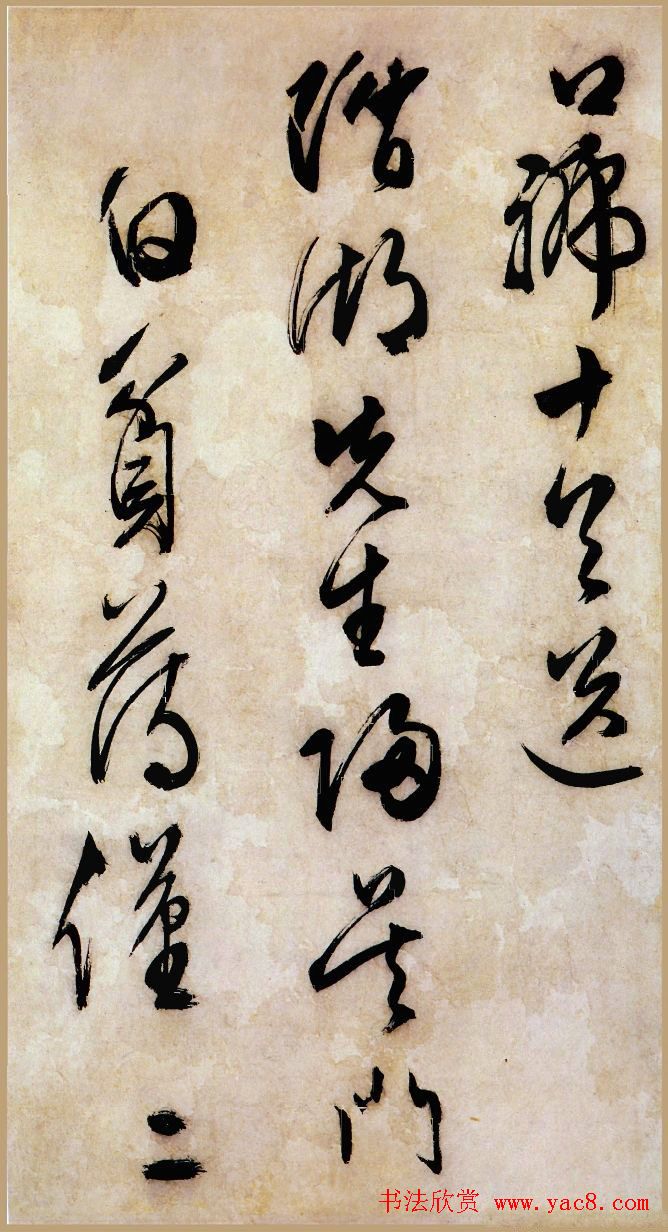 口號十首送
階湖先生歸吳門
白貧薄僅二
书法欣赏 www.yac8.com